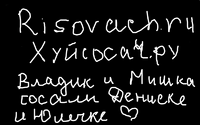 Risovach.ru
Хуйсосач.ру
Владик и Мишка
сосали Дениске
и Юлечке ♡